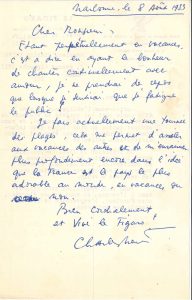 Narbonne, le 8 Août 1953
Cher Monsieur
Etant perpétuellement en vacances,
c'est à dire en ayant le bonheur
de chanter continuellement avec
amour, je ne prendrai de repos
que lorsque je sentirai que je fatigue
le public !
Je fais actuellement une tournée
des plages, cela me permet d'assister
aux vacances des autres et de m'enraciner
plus profondément encore dans l'idée
que la France est le pays le plus
adorable au monde, en vacances, ou
non.
Bien cordialement
et Vive le Figaro !
Charles Trenet